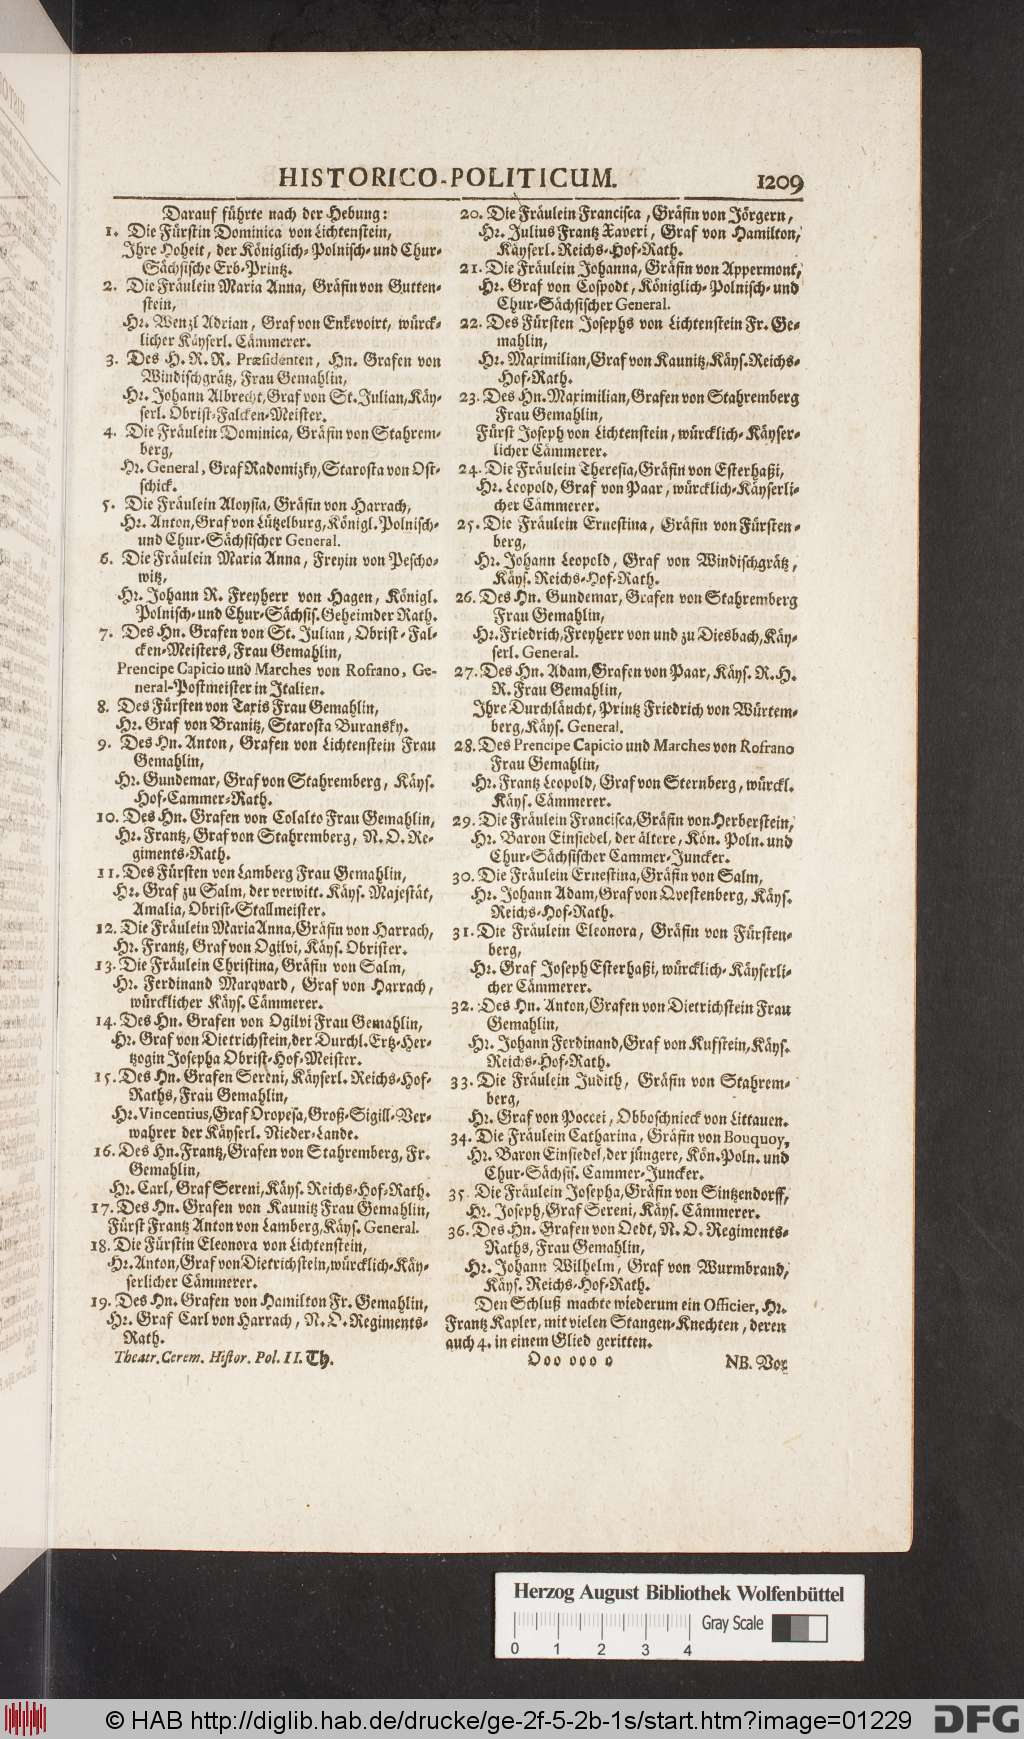 HISTORICO-POLITICUM. 1209
Darauf führte nach der Hebung:
1. Die Fürstin Dominica von Lichtenstein,
Ihre Hoheit, der Königlich-Polnisch- und Chur-
Sächsische Erb-Printz.
2. Die Fräulein Maria Anna, Gräfin von Gutten-
stein,
Hr. Wenzl Adrian, Graf von Enkevoirt, würck-
licher Käyserl. Cämmerer.
3. Des H. R. R. Præsidenten, Hn. Grafen von
Windischgrätz, Frau Gemahlin,
Hr. Johann Albrecht, Graf von St. Julian, Käy-
serl. Obrist-Falcken-Meister.
4. Die Fräulein Dominica, Gräfin von Stahrem-
berg,
Hr. General, Graf Radomizky, Starosta von Ost-
schick.
5. Die Fräulein Aloysia, Gräfin von Harrach,
Hr. Anton, Graf von Lützelburg, Königl. Polnisch-
und Chur-Sächsischer General.
6. Die Fräulein Maria Anna, Freyin von Pescho-
witz,
Hr. Johann R. Freyherr von Hagen, Königl.
Polnisch- und Chur-Sächsis. Geheimder Rath.
7. Des Hn. Grafen von St. Julian, Obrist-Fal-
cken-Meisters, Frau Gemahlin,
Prencipe Capicio und Marches von Rofrano, Ge-
neral-Postmeister in Italien.
8. Des Fürsten von Taxis Frau Gemahlin,
Hr. Graf von Branitz, Starosta Buransky.
9. Des Hn. Anton, Grafen von Lichtenstein Frau
Gemahlin,
Hr. Gundemar, Graf von Stahremberg, Käys.
Hof-Cammer-Rath.
10. Des Hn. Grafen von Colalto Frau Gemahlin,
Hr. Frantz, Graf von Stahremberg, N. O. Re-
giments-Rath.
11. Des Fürsten von Lamberg Frau Gemahlin,
Hr. Graf zu Salm, der verwitt. Käys. Majestät,
Amalia, Obrist-Stallmeister.
12. Die Fräulein Maria Anna, Gräfin von Harrach,
Hr. Frantz, Graf von Ogilvi, Käys. Obrister.
13. Die Fräulein Christina, Gräfin von Salm,
Hr. Ferdinand Marqvard, Graf von Harrach,
würcklicher Käys. Cämmerer.
14. Des Hn. Grafen von Ogilvi Frau Gemahlin,
Hr. Graf von Dietrichstein, der Durchl. Ertz-Her-
tzogin Josepha Obrist-Hof-Meister.
15. Des Hn. Grafen Sereni, Käyserl. Reichs-Hof-
Raths, Frau Gemahlin,
Hr. Vincentius, Graf Oropesa, Groß-Sigill-Ver-
wahrer der Käyserl. Nieder-Lande.
16. Des Hn. Frantz, Grafen von Stahremberg, Fr.
Gemahlin,
Hr. Carl, Graf Sereni, Käys. Reichs-Hof-Rath.
17. Des Hn. Grafen von Kaunitz Frau Gemahlin,
Fürst Frantz Anton von Lamberg, Käys. General.
18. Die Fürstin Eleonora von Lichtenstein,
Hr. Anton, Graf von Dietrichstein, würcklich-Käy-
serlicher Cämmerer.
19. Des Hn. Grafen von Hamilton Fr. Gemahlin,
Hr. Graf Carl von Harrach, N. O. Regiments-
Rath.
Theatr. Cerem. Histor. Pol. II. Th.
20. Die Fräulein Francisca, Gräfin von Jörgern,
Hr. Julius Frantz Xaveri, Graf von Hamilton,
Käyserl. Reichs-Hof-Rath.
21. Die Fräulein Johanna, Gräfin von Appermont,
Hr. Graf von Cospodt, Königlich-Polnisch- und
Chur-Sächsischer General.
22. Des Fürsten Josephs von Lichtenstein Fr. Ge-
mahlin,
Hr. Maximilian, Graf von Kaunitz, Käys. Reichs-
Hof-Rath.
23. Des Hn. Maximilian, Grafen von Stahremberg
Frau Gemahlin,
Fürst Joseph von Lichtenstein, würcklich-Käyser-
licher Cämmerer.
24. Die Fräulein Theresia, Gräfin von Esterhaßi,
Hr. Leopold, Graf von Paar, würcklich-Käyserli-
cher Cämmerer.
25. Die Fräulein Ernestina, Gräfin von Fürsten-
berg,
Hr. Johann Leopold, Graf von Windischgrätz,
Käys. Reichs-Hof-Rath.
26. Des Hn. Gundemar, Grafen von Stahremberg
Frau Gemahlin,
Hr. Friedrich, Freyherr von und zu Diesbach, Käy-
serl. General.
27. Des Hn. Adam, Grafen von Paar, Käys. R. H.
R. Frau Gemahlin,
Ihre Durchläucht, Printz Friedrich von Würtem-
berg, Käys. General.
28. Des Prencipe Capicio und Marches von Rofrano
Frau Gemahlin,
Hr. Frantz Leopold, Graf von Sternberg, würckl.
Käys. Cämmerer.
29. Die Fräulein Francisca, Gräfin von Herberstein,
Hr. Baron Einsiedel, der ältere, Kön. Poln. und
Chur-Sächsischer Cammer-Juncker.
30. Die Fräulein Ernestina, Gräfin von Salm,
Hr. Johann Adam, Graf von Qvestenberg, Käys.
Reichs-Hof-Rath.
31. Die Fräulein Eleonora, Gräfin von Fürsten-
berg,
Hr. Graf Joseph Esterhaßi, würcklich-Käyserli-
cher Cämmerer.
32. Des Hn. Anton, Grafen von Dietrichstein Frau
Gemahlin,
Hr. Johann Ferdinand, Graf von Kufstein, Käys.
Reichs-Hof-Rath.
33. Die Fräulein Judith, Gräfin von Stahrem-
berg,
Hr. Graf von Poccei, Obboschnieck von Littauen.
34. Die Fräulein Catharina, Gräfin von Bouquoy,
Hr. Baron Einsiedel, der jüngere, Kön. Poln. und
Chur-Sächsis. Cammer-Juncker.
35. Die Fräulein Josepha, Gräfin von Sintzendorff,
Hr. Joseph, Graf Sereni, Käys. Cämmerer.
36. Des Hn. Grafen von Oedt, N. O. Regiments-
Raths, Frau Gemahlin,
Hr. Johann Wilhelm, Graf von Wurmbrand,
Käys. Reichs-Hof-Rath.
Den Schluß machte wiederum ein Officier, Hr.
Frantz Kapler, mit vielen Stangen-Knechten, deren
auch 4. in einem Glied geritten.
Ooo ooo o NB. Vor
Herzog August Bibliothek Wolfenbüttel
Gray Scale
0 1 2 3 4
© HAB http://diglib.hab.de/drucke/ge-2f-5-2b-1s/start.htm?image=01229 DFG